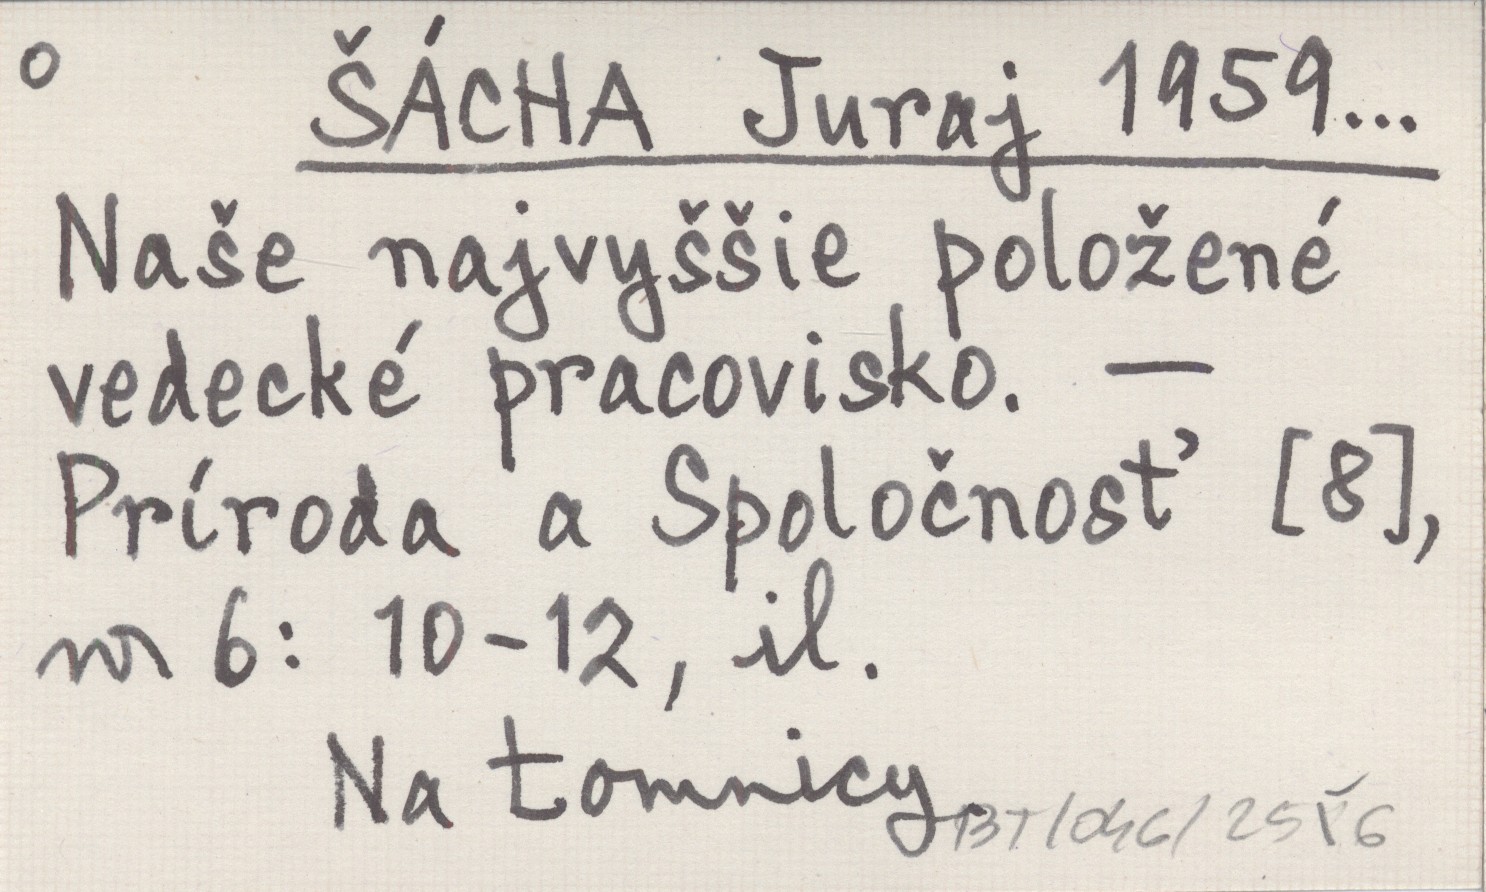 o ŠÁCHA Juraj 1959...
Naše najvyššie položené
vedecké pracovisko. —
Príroda a Spoločnosť [8],
nr 6: 10-12, il.
Na Łomnicy.